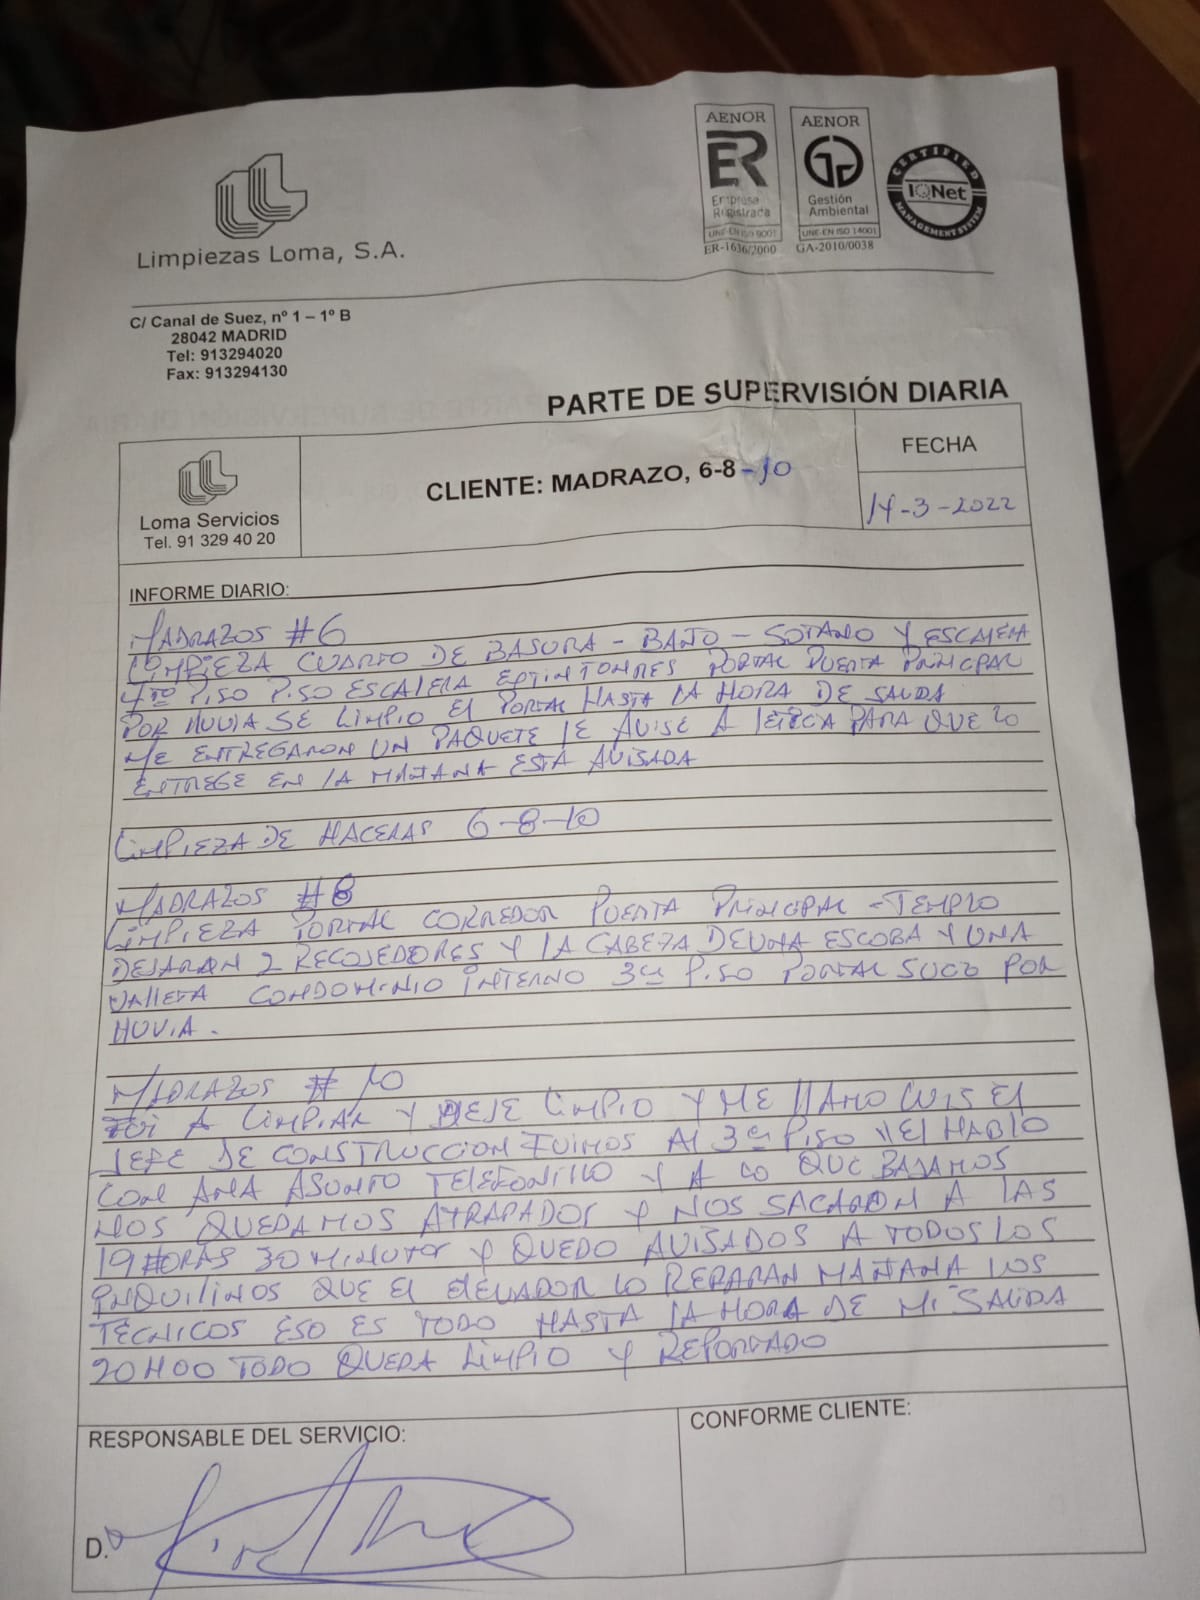 AENOR
ER
Empresa
Registrada
UNE-EN ISO 9001
ER-1636/2000
AENOR
Gestión
Ambiental
UNE-EN ISO 14001
GA-2010/0038
CERTIFIED
IQNet
MANAGEMENT SYSTEM
Limpiezas Loma, S.A.
C/ Canal de Suez, nº 1 – 1º B
28042 MADRID
Tel: 913294020
Fax: 913294130
PARTE DE SUPERVISIÓN DIARIA
Loma Servicios
Tel. 91 329 40 20
CLIENTE: MADRAZO, 6-8-10
FECHA
14-3-2022
INFORME DIARIO:
MADRAZOS #6
LIMPIEZA CUARTO DE BASURA - BAÑO - SOTANO Y ESCALERA
4to PISO PISO ESCALERA EXTINTORES PORTAL PUERTA PRINCIPAL
POR LLUVIA SE LIMPIO EL PORTAL HASTA LA HORA DE SALIDA
ME ENTREGARON UN PAQUETE LE AVISE A LETICIA PARA QUE LO
ENTREGE EN LA MAÑANA ESTA AVISADA
LIMPIEZA DE HACERAS 6-8-10
MADRAZOS #8
LIMPIEZA PORTAL CORREDOR PUERTA PRINCIPAL - TEMPLO
DEJARAN 2 RECOJEDORES Y LA CABEZA DE UNA ESCOBA Y UNA
VALLETA CONDOMINIO INTERNO 3er PISO PORTAL SUCIO POR
LLUVIA.
MADRAZOS # 10
FUI A LIMPIAR Y DEJE LIMPIO Y ME LLAMO LUIS EL
JEFE DE CONSTRUCCION FUIMOS AL 3er PISO Y EL HABLO
CON ANA ASUNTO TELEFONILLO Y A LO QUE BAJAMOS
NOS QUEDAMOS ATRAPADOS Y NOS SACARON A LAS
19 HORAS 30 MINUTOS Y QUEDO AVISADOS A TODOS LOS
INQUILINOS QUE EL ELEVADOR LO REPARAN MAÑANA LOS
TECNICOS ESO ES TODO HASTA LA HORA DE MI SALIDA
20H00 TODO QUEDA LIMPIO Y REPORTADO
RESPONSABLE DEL SERVICIO:
CONFORME CLIENTE:
D.